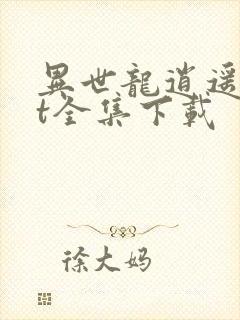 異世龍逍遥
t全集下載
徐大妈